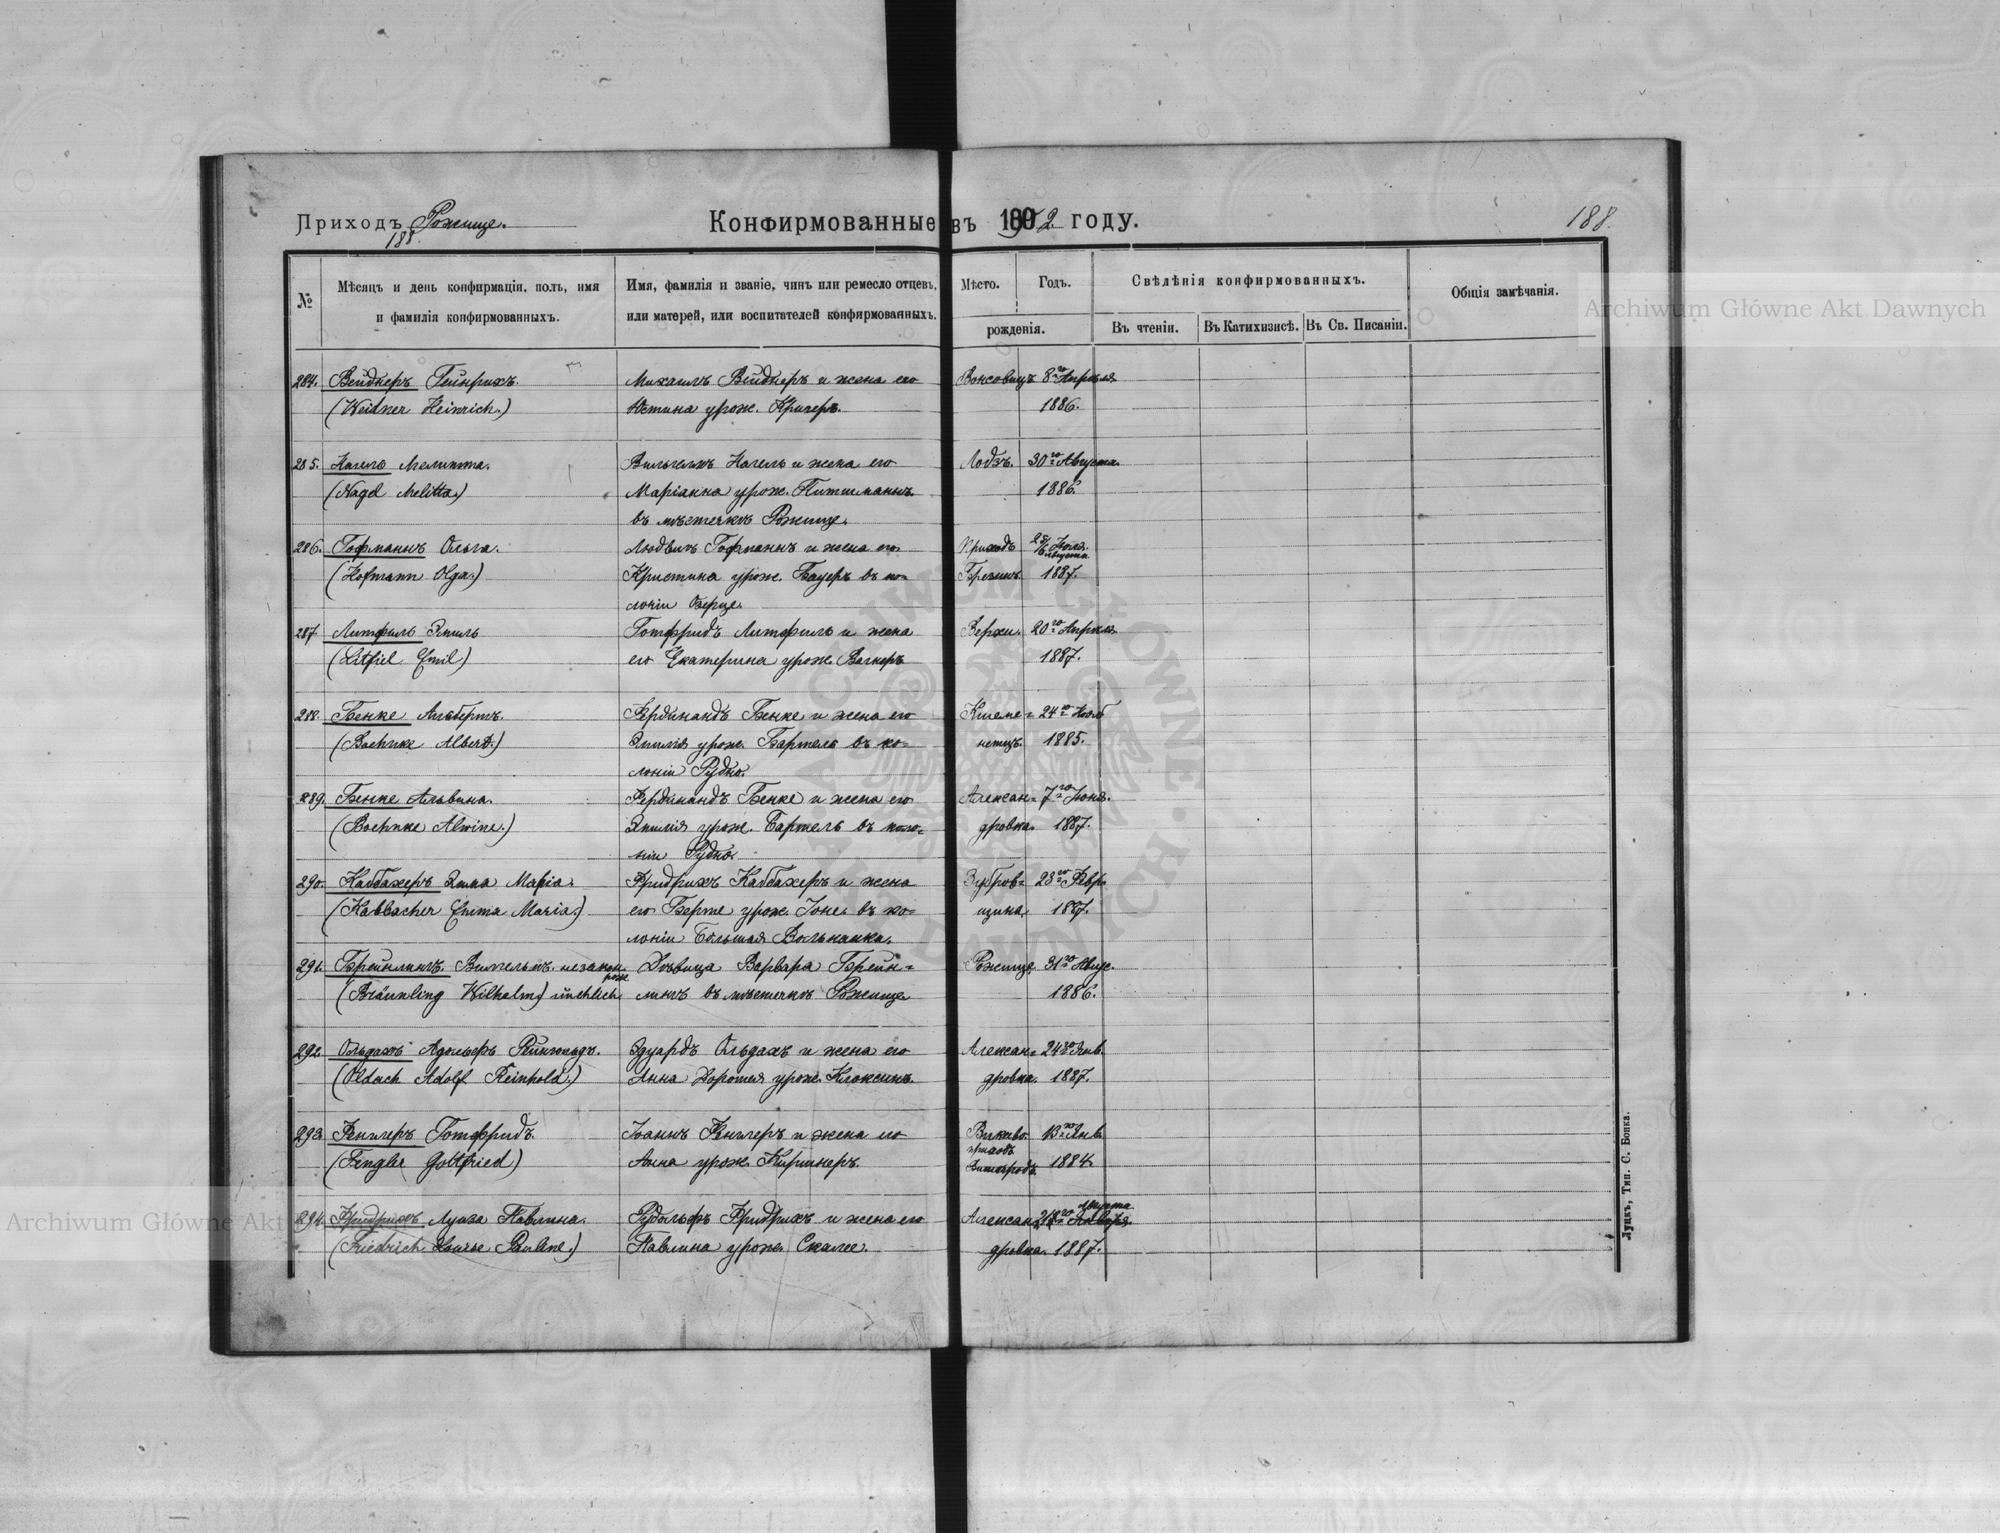 Приходъ Рожище.
188
Конфирмованные въ 1902 году.
188
№
Мѣсяцъ и день конфирмаціи, полъ, имя
и фамилія конфирмованныхъ.
Имя, фамилія и званіе, чинъ или ремесло отцевъ,
или матерей, или воспитателей конфирмованныхъ.
Мѣсто. Годъ.
рожденія.
Свѣдѣнія конфирмованныхъ.
Въ чтеніи. Въ Катихизисѣ. Въ Св. Писаніи.
Общія замѣчанія.
Archiwum Główne Akt Dawnych
284. Вейднеръ Гейнрихъ. Михаилъ Вейднеръ и жена его 8го Апрѣля
(Weidner Heinrich.) Юстина урож. Кригеръ. 1886.
285. Нагель Мелитта. Вильгельмъ Нагель и жена его Лодзь. 30го Августа.
(Nagel Melitta.) Маріанна урож. 1886.
въ мѣстечкѣ Рожище.
286. Гофманъ Ольга. Людвигъ Гофманъ и жена его Приходъ 25/6 Іюля/Августа
(Hofmann Olga.) Кристина урож. Бауеръ въ ко- 1887.
лоніи Озерце.
287 Литфиль Эмиль Готфридъ Литфиль и жена 20го Апрѣля
(Litfiel Emil) его Екатерина урож. Вагнеръ 1887.
288. Бенке Альбертъ. Фердинандъ Бенке и жена его 24го Нояб
(Boehnke Albert.) Эмилія урож. Бартель въ ко- 1885.
лоніи Рудно.
289. Бенке Альвина. Фердинандъ Бенке и жена его Алексан- 7го Іюня.
(Boehnke Alwine.) Эмилія урож. Бартель въ коло- дровка. 1887.
ніи Рудно.
290. Каббахеръ Эмма Марія. Фридрихъ Каббахеръ и жена Зубров- 28го Февр.
(Kabbacher Emma Maria.) его Берта урож. въ ко- щина. 1887.
лоніи Большая Вольнянка.
291. Брейнлингъ Вильгельмъ. незакон. рож. Дѣвица Варвара Брейн- Рожище. 31го Авгус.
(Bräunling Wilhelm) unehlich лингъ въ мѣстечкѣ Рожище 1886.
292. Ольдахъ Адольфъ Рейнгольдъ. Эдуардъ Ольдахъ и жена его Алексан- 24го Янв.
(Oldach Adolf Reinhold.) Анна Доротея урож. Клоксинъ. дровка. 1887.
293. Фенглеръ Готфридъ. Іоаннъ Фенглеръ и жена его 13го Янв.
приходъ
(Fengler Gottfried) Анна урож. Киршнеръ. 1884.
Августа
294. Фридрихъ Луиза Павлина. Рудольфъ Фридрихъ и жена его Алексан- Января
(Friedrich Louise Pauline.) Павлина урож. дровка. 1887.
Archiwum Główne Akt
Луцкъ, Тип. С. Бонка.
ARCHIWUM GŁÓWNE AKT DAWNYCH